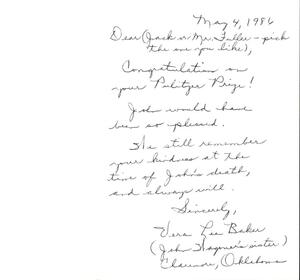 May 4, 1986
Dear (Jack or Mr. Fuller – pick
the one you like),
Congratulations on
your Pulitzer Prize!
John would have
been so pleased.
We still remember
your kindness at the
time of John's death,
and always will.
Sincerely,
Vera Lee Baker
(John Wagoner's sister)
Claremore, Oklahoma